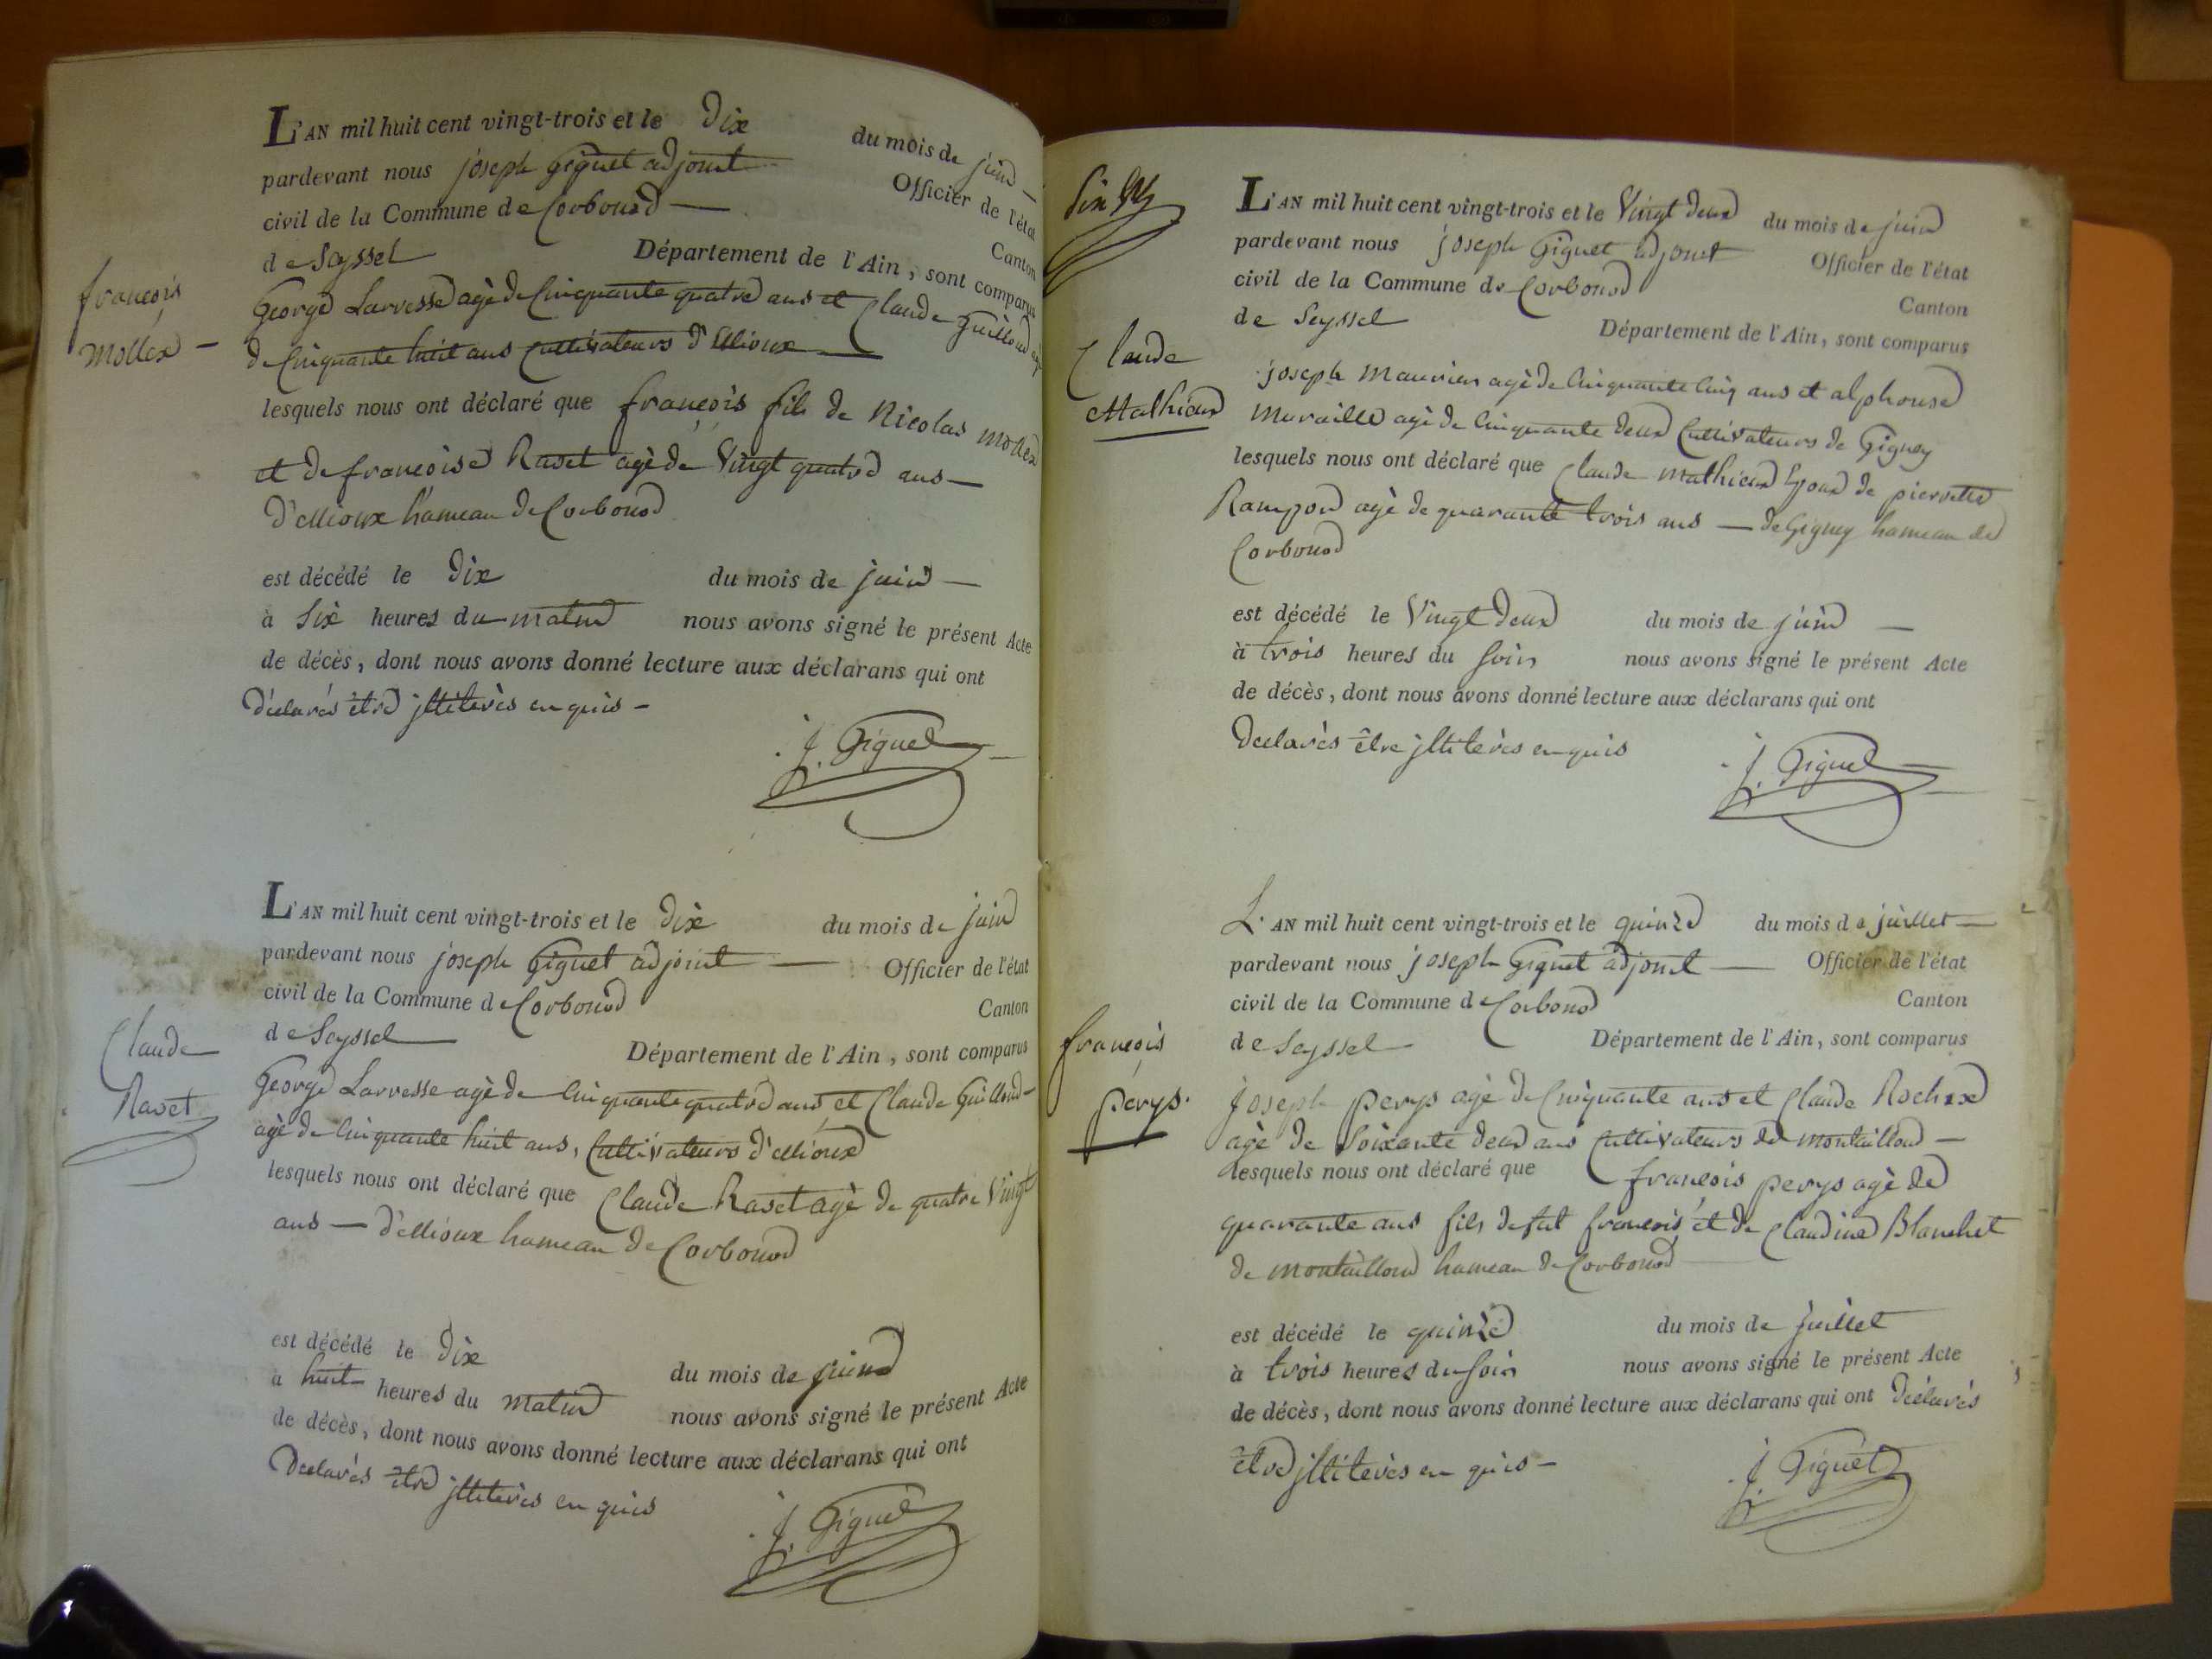 L'AN mil huit cent vingt-trois et le Dix du mois de juin
pardevant nous joseph Giguet adjoint Officier de l'état
civil de la Commune de Corbonod Canton
de Seyssel Département de l'Ain, sont comparus
françois
mollex
George Larvesse agè de Cinquante quatre ans et Claude Guilloud agè
de Cinquante huit ans Cultivateurs d'Ellioux
lesquels nous ont déclaré que françois fils de Nicolas mollex
et de françoise Ravet agè de Vingt quatre ans
D'ellioux hameau de Corbonod
est décédé le Dix du mois de juin
à Six heures du matin nous avons signé le présent Acte
de décès, dont nous avons donné lecture aux déclarans qui ont
Déclarés être jllitérès en quis
J. Giguet
L'AN mil huit cent vingt-trois et le Dix du mois de juin
pardevant nous joseph Giguet adjoint Officier de l'état
civil de la Commune de Corbonod Canton
de Seyssel Département de l'Ain, sont comparus
Claude
Ravet
George Larvesse agè de Cinquante quatre ans et Claude Guilloud
agè de Cinquante huit ans, Cultivateurs d'Ellioux
lesquels nous ont déclaré que Claude Ravet agè de quatre Vingt
ans d'ellioux hameau de Corbonod
est décédé le Dix du mois de juin
à huit heures du matin nous avons signé le présent Acte
de décès, dont nous avons donné lecture aux déclarans qui ont
Declarés être jllitérès en quis
J. Giguet
Six
L'AN mil huit cent vingt-trois et le Vingt deux du mois de juin
pardevant nous joseph Giguet adjoint Officier de l'état
civil de la Commune de Corbonod Canton
de Seyssel Département de l'Ain, sont comparus
Claude
Mathieux
joseph Maurier agè de Cinquante Cinq ans et alphonse
Muraille agè de Cinquante deux Cultivateurs de Gigney
lesquels nous ont déclaré que Claude Mathieux Epoux de pierrette
Rampon agè de quarante trois ans de Gigney hameau de
Corbonod
est décédé le Vingt Deux du mois de juin
à trois heures du Soir nous avons signé le présent Acte
de décès, dont nous avons donné lecture aux déclarans qui ont
Declarés être jllitérès en quis
J. Giguet
L'AN mil huit cent vingt-trois et le quinze du mois de juillet
pardevant nous joseph Giguet adjoint Officier de l'état
civil de la Commune de Corbonod Canton
de Seyssel Département de l'Ain, sont comparus
françois
perys
joseph perys agè de Cinquante ans et Claude Rochex
agè de Soixante deux ans Cultivateurs de montailloud
lesquels nous ont déclaré que françois perys agè de
quarante ans fils de fut françois et de Claudine Blanchet
de montailloud hameau de Corbonod
est décédé le quinze du mois de juillet
à trois heures du Soir nous avons signé le présent Acte
de décès, dont nous avons donné lecture aux déclarans qui ont Déclarés
être jllitérès en quis
J. Giguet